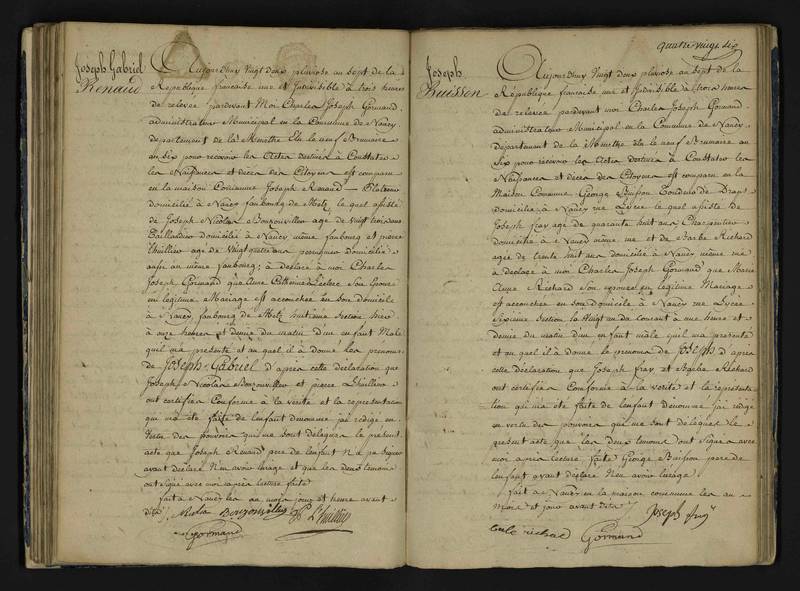 Joseph Gabriel
Renaud
Aujourd'huy Vingt deux pluviose an sept de la
République francaise une et Indivisible à trois heures
de relevée pardevant Moi Charles Joseph Gormand
administrateur Municipal en la Commune de Nancy
département de la Meurthe Elu le neuf Brumaire
an six pour recevoir les Actes destinés à Constater
les Naissances et décès des Citoyens est comparu
en la maison Commune Joseph Renaud
domicilié à Nancy faubourg de Metz, lequel assisté
de Joseph Nicolas Bouzonvillier agé de Vingt trois ans
domicilié à Nancy même faubourg et pierre
Lhuillier agé de Vingt quatre ans perruquier domicilié
aussi au même faubourg; a déclaré à moi Charles
Joseph Gormand que Anne Catherine Leclerc Son Epouse
en legitime Mariage est accouchée en son domicile
à Nancy, faubourg de Metz huitieme Section hier
à onze heures et demie du matin d'un enfant Male
qu'il m'a présenté et auquel il à donné les prenoms
de Joseph-Gabriel d'après cette déclaration que
Joseph Nicolas Bouzonvillier et pierre Lhuillier
ont certifiée Conforme à la verité et la représentation
qui m'a été faite de l'enfant dénommé j'ai rédigé en
Vertu des pouvoirs qui me sont délégués le présent
acte que Joseph Renaud pere de l'enfant n'a pu signer
ayant déclaré n'en avoir l'usage et que les deux temoins
ont signé avec moi après lecture faite
fait à Nancy les an mois jour et heure avant
dits
Nicolas Bouzonvillier P Lhuillier
Gormand
quatre vingt six
Joseph
Buisson
Aujourd'huy Vingt deux pluviose an sept de la
République francaise une et Indivisible à trois heures
de relevée pardevant moi Charles Joseph Gormand
administrateur Municipal en la Commune de Nancy
département de la Meurthe Elu le neuf Brumaire an
Six pour recevoir les Actes destinés à Constater les
Naissances et décès des Citoyens est comparu en la
Maison Commune George Buisson Tondeur de Draps
domicilié à Nancy rue Lycée lequel assisté de
Joseph fray agé de quarante huit ans Charpentier
domicilié à Nancy même rue et de Barbe Richard
agée de trente huit ans domiciliée à Nancy même rue
a déclaré à moi Charles Joseph Gormand que Marie
Anne Richard Son epouse en légitime Mariage
est accouchée en son domicile à Nancy rue Lycée
Sixieme Section le Vingt un du Courant à une heure et
demie du matin d'un enfant mâle qu'il m'a présenté
et auquel il à donné le prenom de Joseph d'après
cette déclaration que Joseph fray et Barbe Richard
ont certifiée Conforme à la verité et la représenta
tion qui m'a été faite de l'enfant dénommé j'ai rédigé
en vertu des pouvoirs qui me sont délégués le
présent acte que les deux temoins ont signé avec
moi après lecture faite George Buisson pere de
l'enfant ayant déclaré n'en avoir l'usage
fait à Nancy en la maison commune les an
Mois et jour avant dits
Joseph fray
barbe richard Gormand